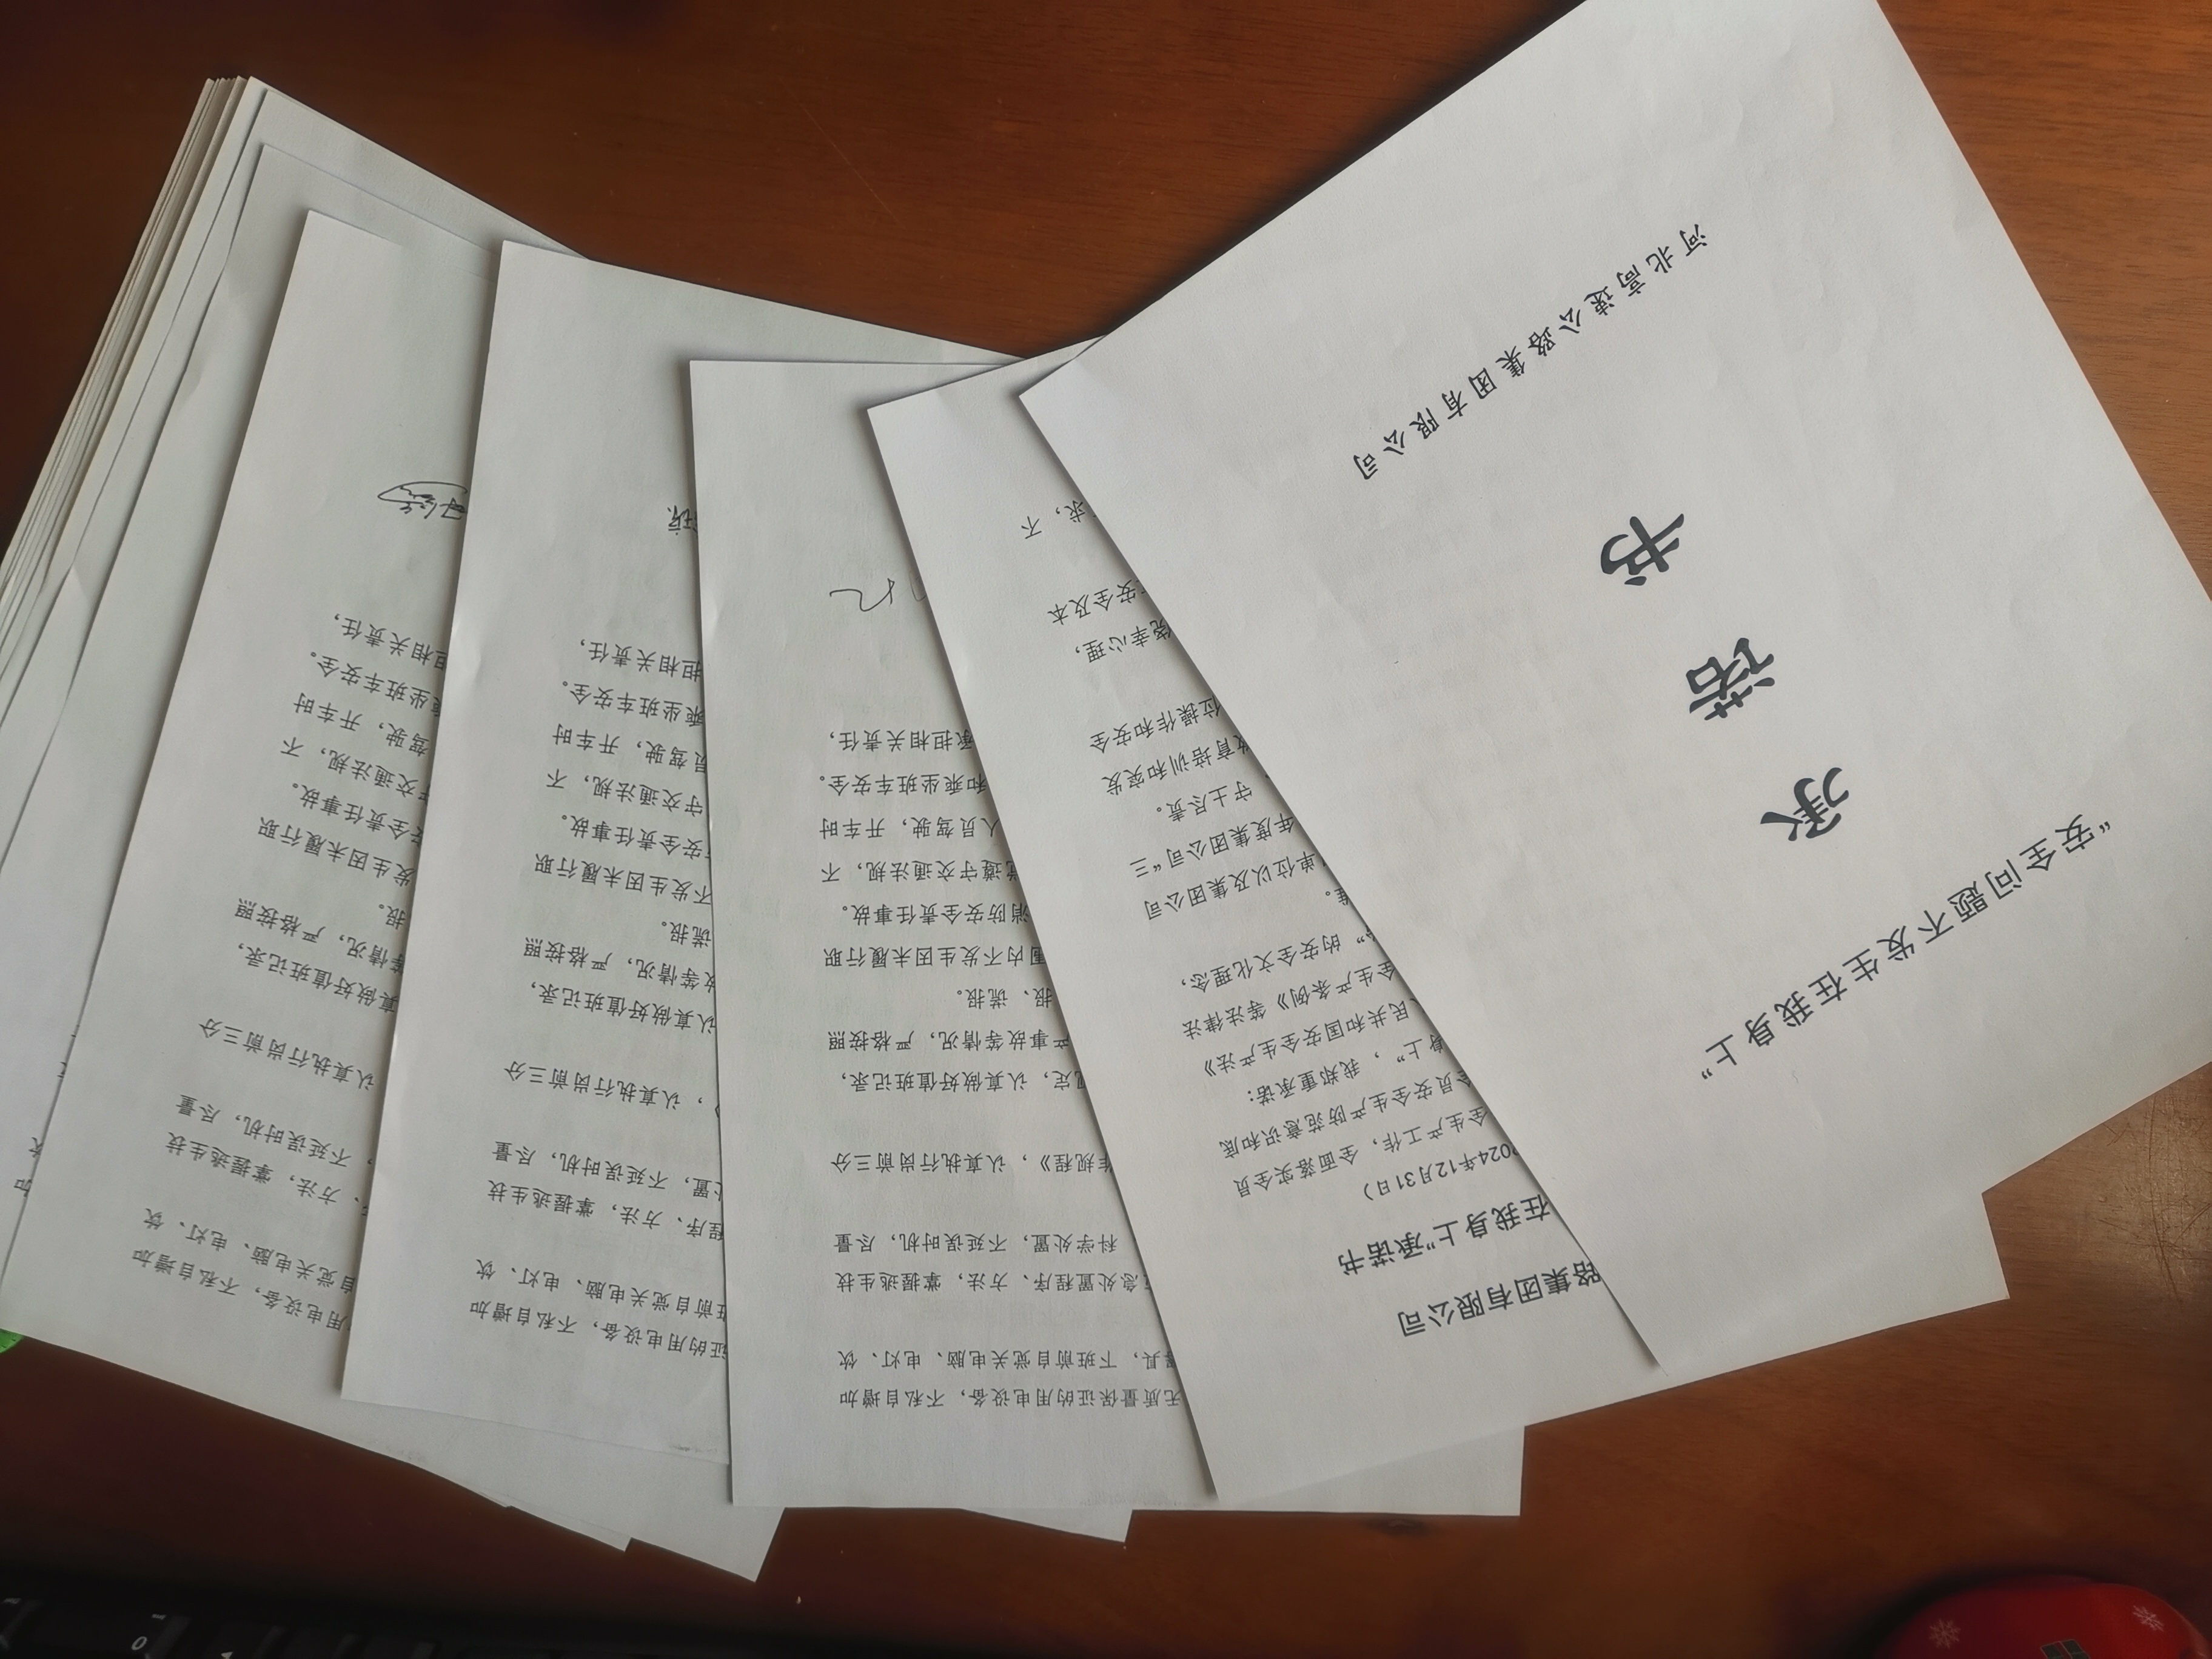 “安全问题不发生在我身上”
承
诺
书
河北高速公路集团有限公司
路集团有限公司
在我身上”承诺书
2024年12月31日）
全生产工作，全面落实全员
全员安全生产防范意识和底
身上”，我郑重承诺：
民共和国安全生产法》
全生产条例》等法律法
”的安全文化理念，
准。
单位以及集团公司
年度集团公司“三
守土尽责。
教育培训和突发
位操作和安全
侥幸心理，
安全及本
求，不
无质量保证的用电设备，不私自增加
具，下班前自觉关电脑、电灯、饮
急处置程序、方法，掌握逃生技
科学处置，不延误时机，尽量
作规程》，认真执行岗前三分
规定，认真做好值班记录，
产事故等情况，严格按照
报、谎报。
围内不发生因未履行职
消防安全责任事故。
遵守交通法规，不
人员驾驶，开车时
和乘坐班车安全。
承担相关责任，
证的用电设备，不私自增加
班前自觉关电脑、电灯、饮
程序、方法，掌握逃生技
处置，不延误时机，尽量
》，认真执行岗前三分
认真做好值班记录，
故等情况，严格按照
谎报。
不发生因未履行职
安全责任事故。
守交通法规，不
员驾驶，开车时
乘坐班车安全。
担相关责任，
用电设备，不私自增加
自觉关电脑、电灯、饮
、方法，掌握逃生技
，不延误时机，尽量
认真执行岗前三分
真做好值班记录，
等情况，严格按照
报。
发生因未履行职
全责任事故。
交通法规，不
驾驶，开车时
坐班车安全。
担相关责任，